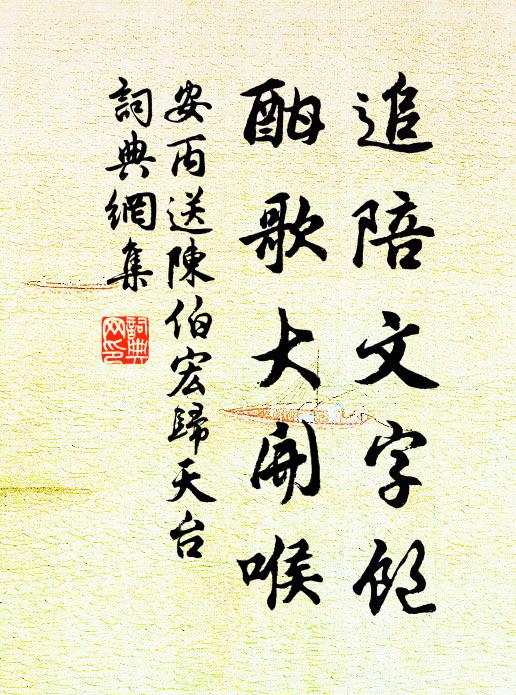 追陪文字飲
酣歌大開喉
安丙送陳伯宏歸天台
詞典網集
詞典
网印